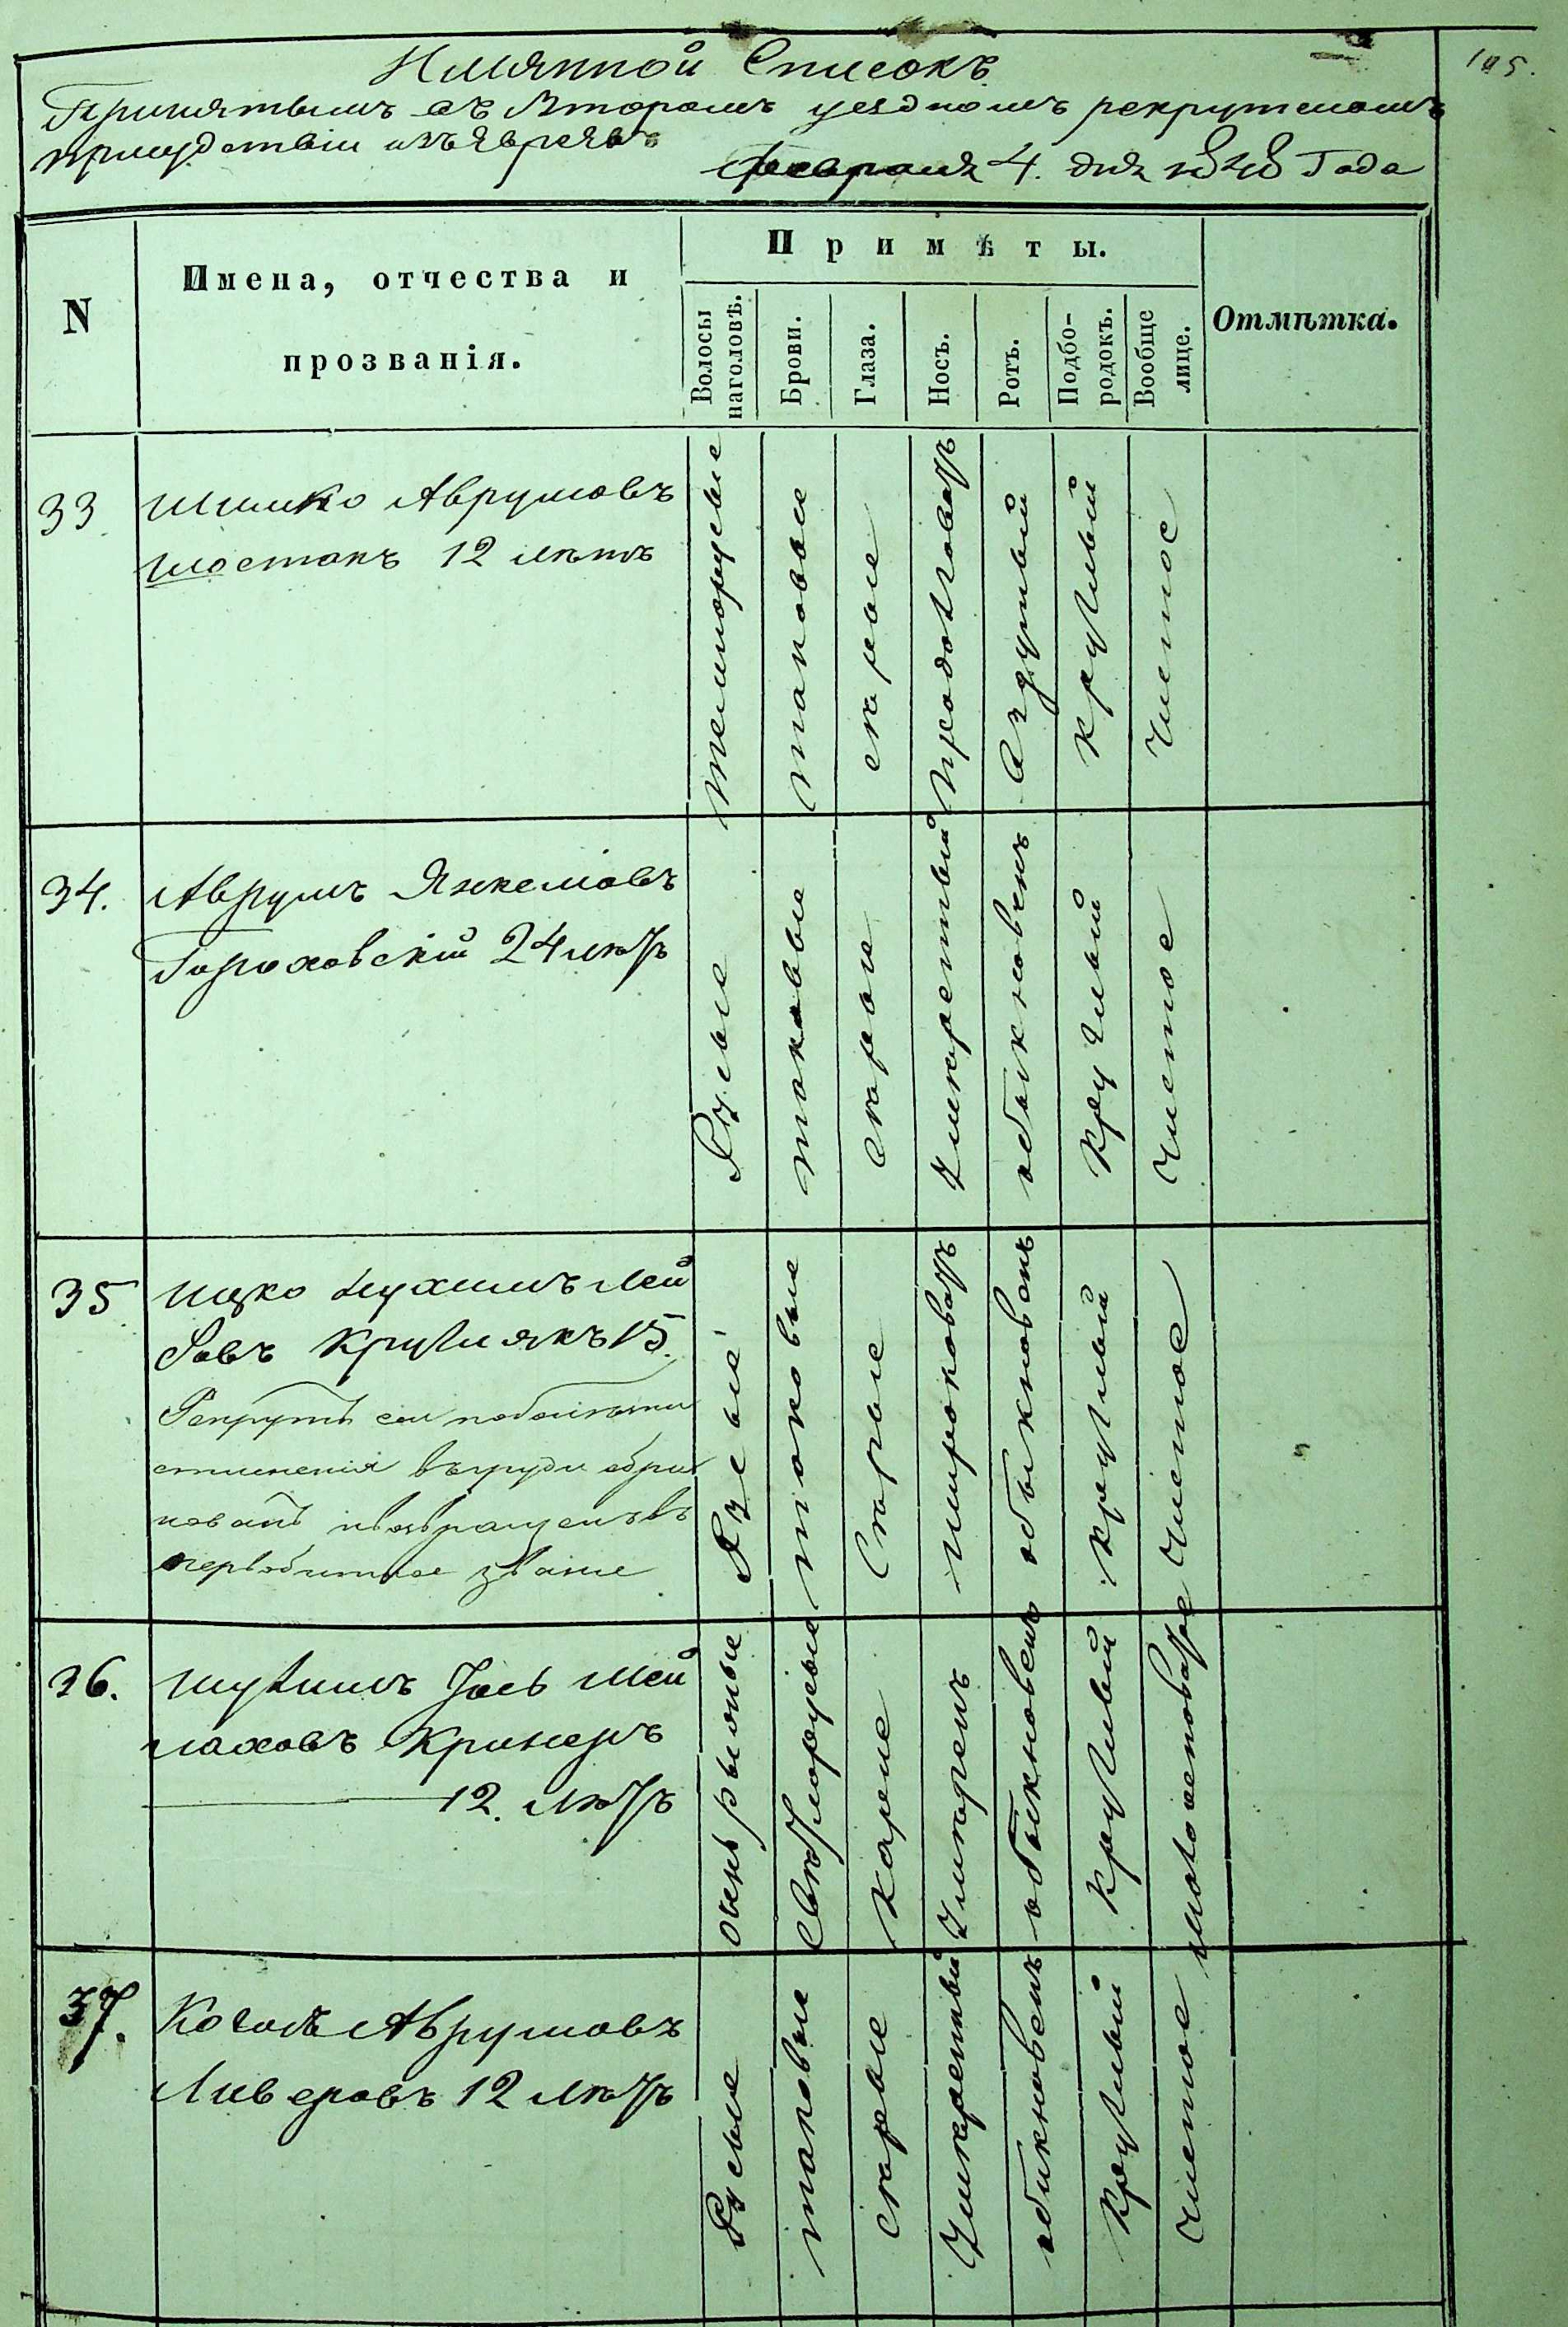 105.
Имянной Списокъ
Принятымъ въ Второмъ уездномъ рекрутскомъ
присудствіи изъ Евреевъ
Февраля 4. дня 1848 Года
N
Имена, отчества и
прозванія.
Примѣты.
Волосы
наголовѣ.
Брови.
Глаза.
Носъ.
Ротъ.
Подбо-
родокъ.
Вообще
лице.
Отмѣтка.
33
Шмико Аврумовъ
Шостакъ 12 лѣтъ
темнорусые
таковые
серые
продолговатъ
круглый
чистое
34.
Аврумъ Янкелiовъ
Гороховскій 24 лѣтъ
Русые
таковые
серые
Умѣренный
обыкновенъ
круглый
чистое
35
Ицко Нухимъ Лей
Круглякъ 15.
Рекрутъ сей по болѣзни
стеснения въ груди обра
кованъ и возвращенъ въ
первобытное звание
Русые
таковые
Серые
широковатъ
обыкновенъ
круглый
чистое
36.
Шулимъ Іось Мей
лаховъ Кримеръ
12. лѣтъ
очень рыжые
Светлорусые
Карие
Умеренъ
обыкновенъ
круглый
37.
Аврумовъ
Ливеровъ 12 лѣтъ
Русые
таковые
серые
Умеренный
обикновенъ
круглый
чистое